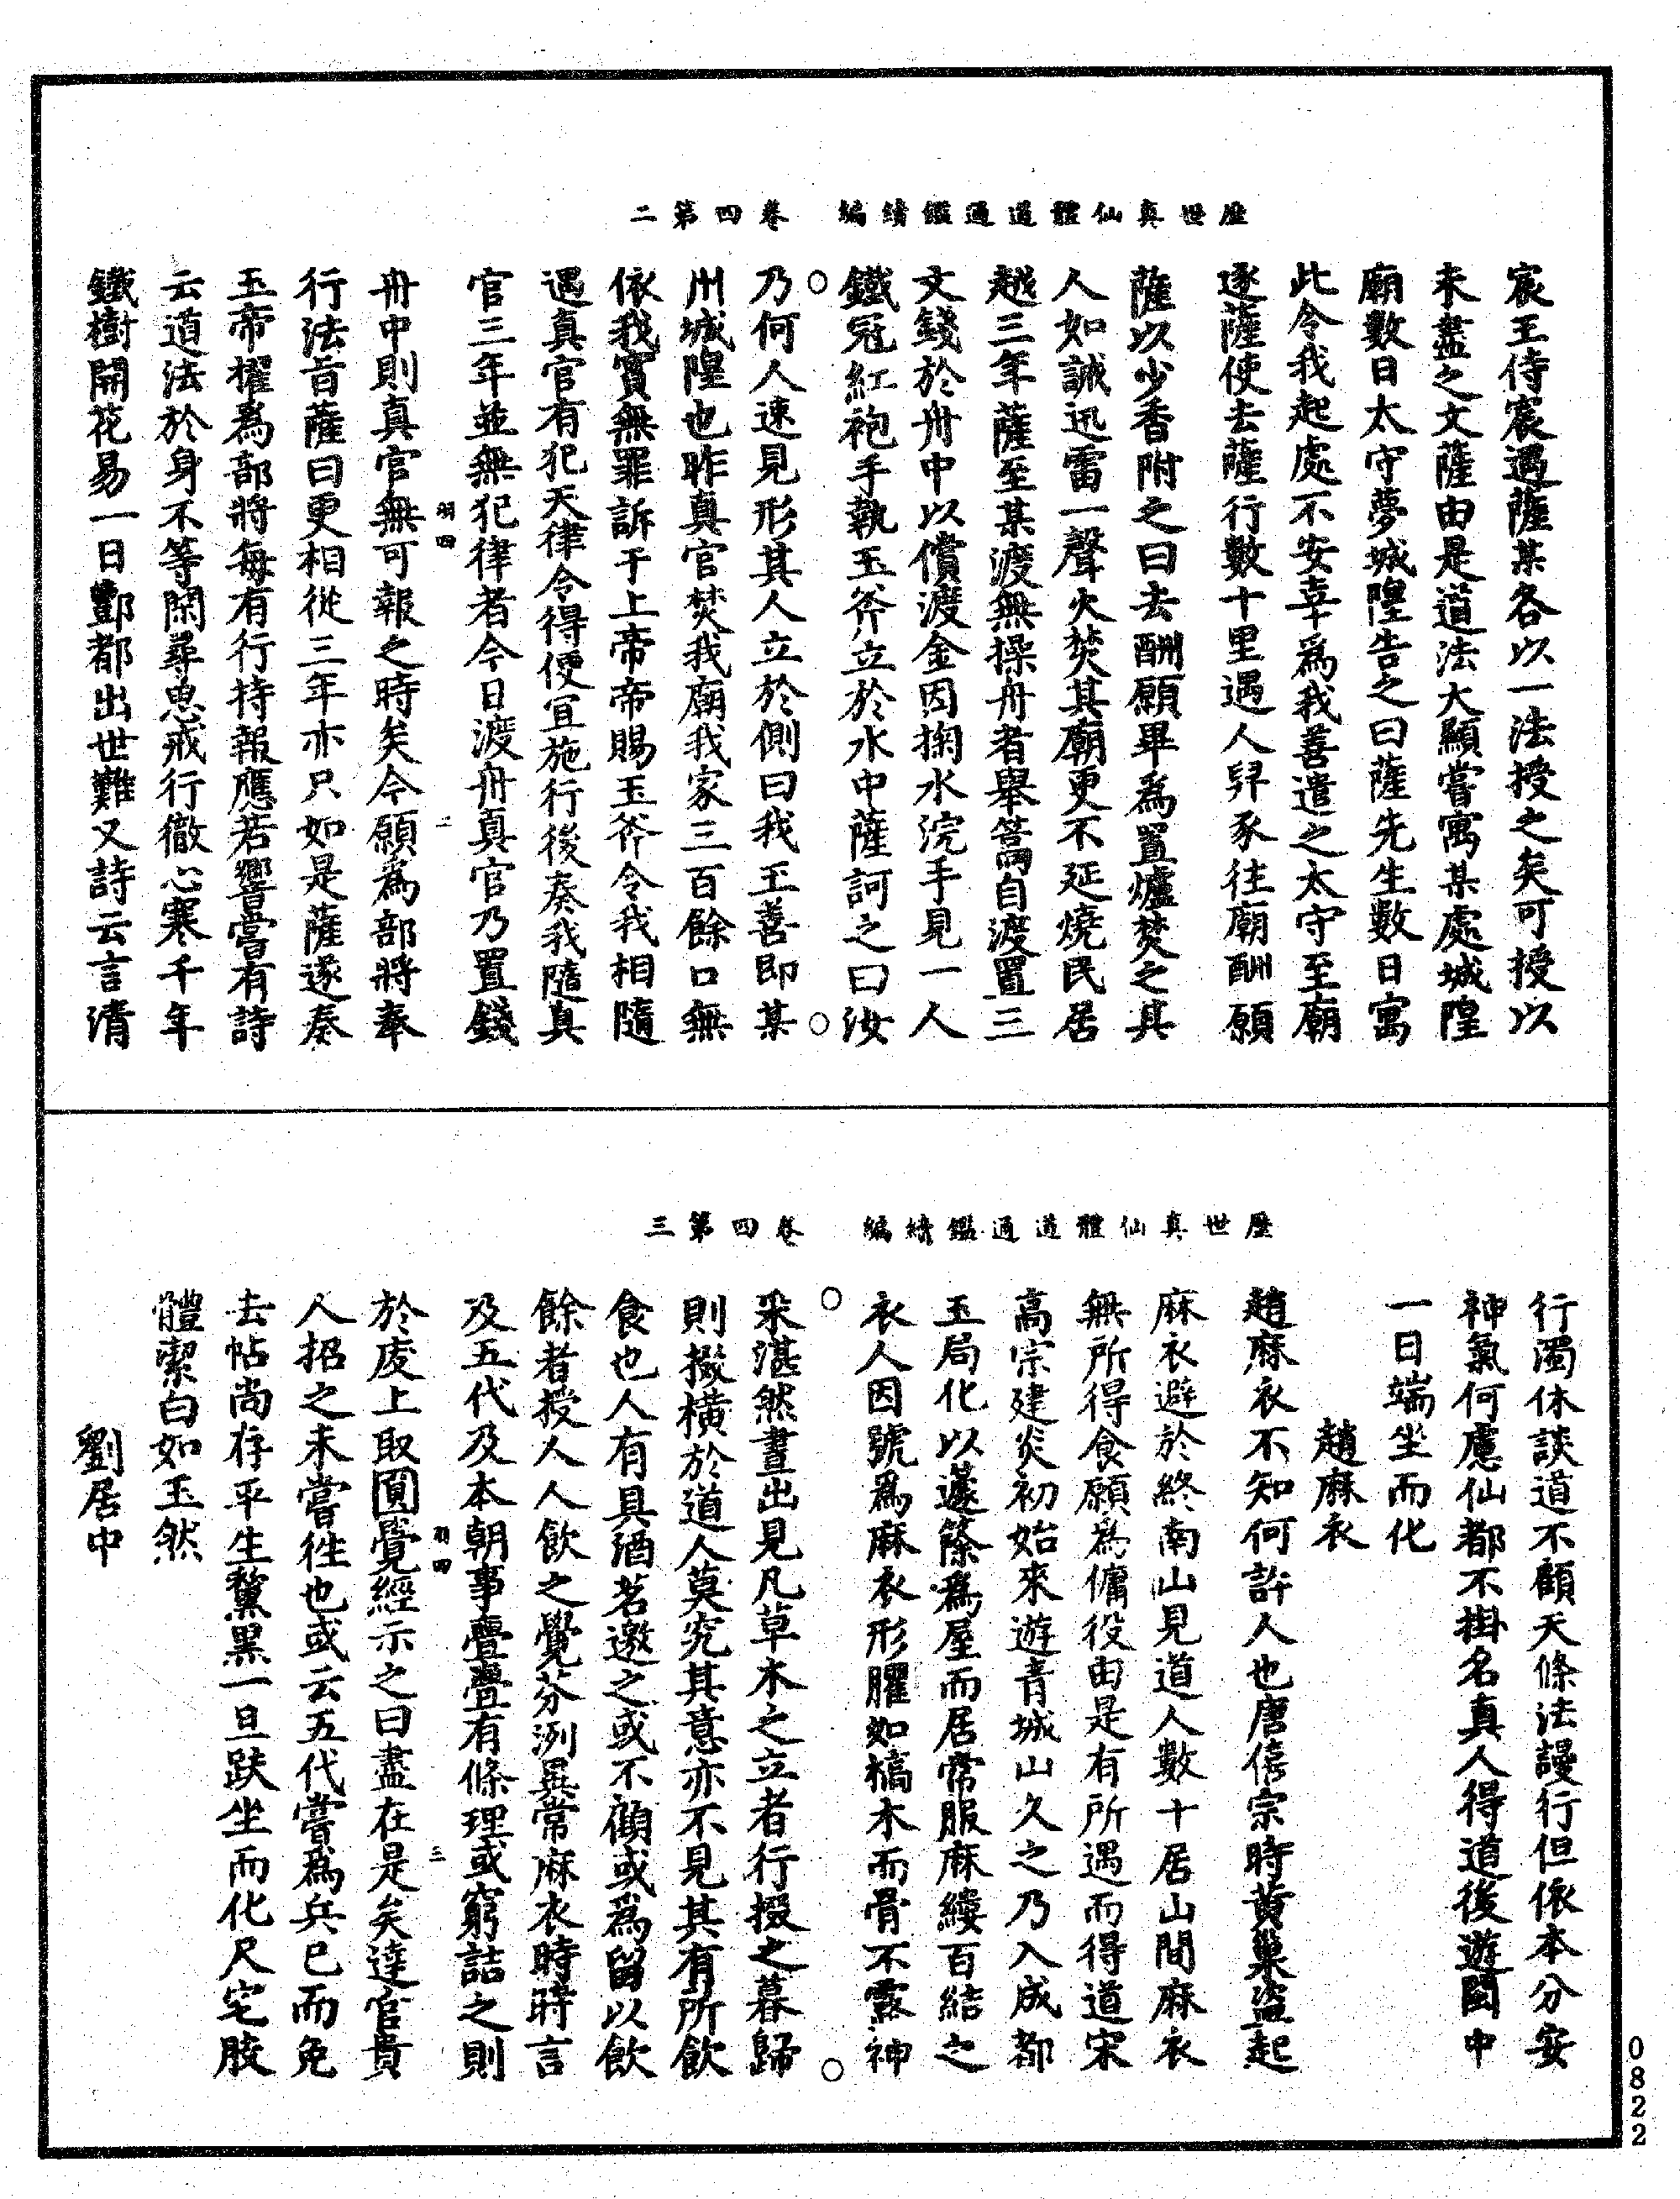 歷世真仙體道通鑑續編　卷四第二
宸王侍宸遇薩某各以一法授之矣可授以
未盡之文薩由是道法大顯嘗寓某處城隍
廟數日太守夢城隍告之曰薩先生數日寓
此令我起處不安幸為我善遣之太守至廟
逐薩使去薩行數十里遇人舁豕往廟酬願
薩以少香附之曰去酬願畢為置爐焚之其
人如誡迅雷一聲火焚其廟更不延燒民居
越三年薩至某渡無操舟者舉篙自渡置三
文錢於舟中以償渡金因掬水浣手見一人
鐵冠紅袍手執玉斧立於水中薩訶之曰汝
乃何人速見形其人立於側曰我王善即某
州城隍也昨真官焚我廟我家三百餘口無
依我實無罪訴于上帝帝賜玉斧令我相隨
遇真官有犯天律令得便宜施行後奏我隨真
官三年並無犯律者今日渡舟真官乃置錢
羽四　二
舟中則真官無可報之時矣今願為部將奉
行法旨薩曰更相從三年亦只如是薩遂奏
玉帝擢為部將每有行持報應若響嘗有詩
云道法於身不等閑尋思戒行徹心寒千年
鐵樹開花易一日酆都出世難又詩云言清
歷世真仙體道通鑑續編　卷四第三
行濁休談道不顧天條法謾行但依本分安
神氣何慮仙都不掛名真人得道後遊閩中
一日端坐而化
趙麻衣
趙麻衣不知何許人也唐僖宗時黃巢盜起
麻衣避於終南山見道人數十居山間麻衣
無所得食願為傭役由是有所遇而得道宋
高宗建炎初始來遊青城山久之乃入成都
玉局化以蘧篨為屋而居常服麻縷百結之
衣人因號為麻衣形臞如槁木而骨不露神
采湛然晝出見凡草木之立者行掇之暮歸
則撒橫於道人莫究其意亦不見其有所飲
食也人有具酒茗邀之或不顧或為留以飲
餘者授人人飲之覺芬冽異常麻衣時時言
及五代及本朝事亹亹有條理或窮詰之則
羽四　三
於庋上取圓覺經示之曰盡在是矣達官貴
人招之未嘗往也或云五代嘗為兵已而免
去帖尚存平生黧黑一旦趺坐而化尺宅肢
體潔白如玉然
劉居中
0822